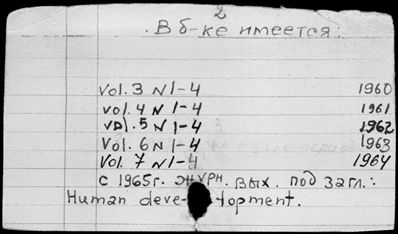 2
В б-ке имеется:
Vol. 3 N 1-4 1960
vol. 4 N 1-4 1961
vol. 5 N 1-4 1962
Vol. 6 N 1-4 1963
Vol. 7 N 1-4 1964
с 1965г. журн. вых. под загл.:
Human deve-lopment.